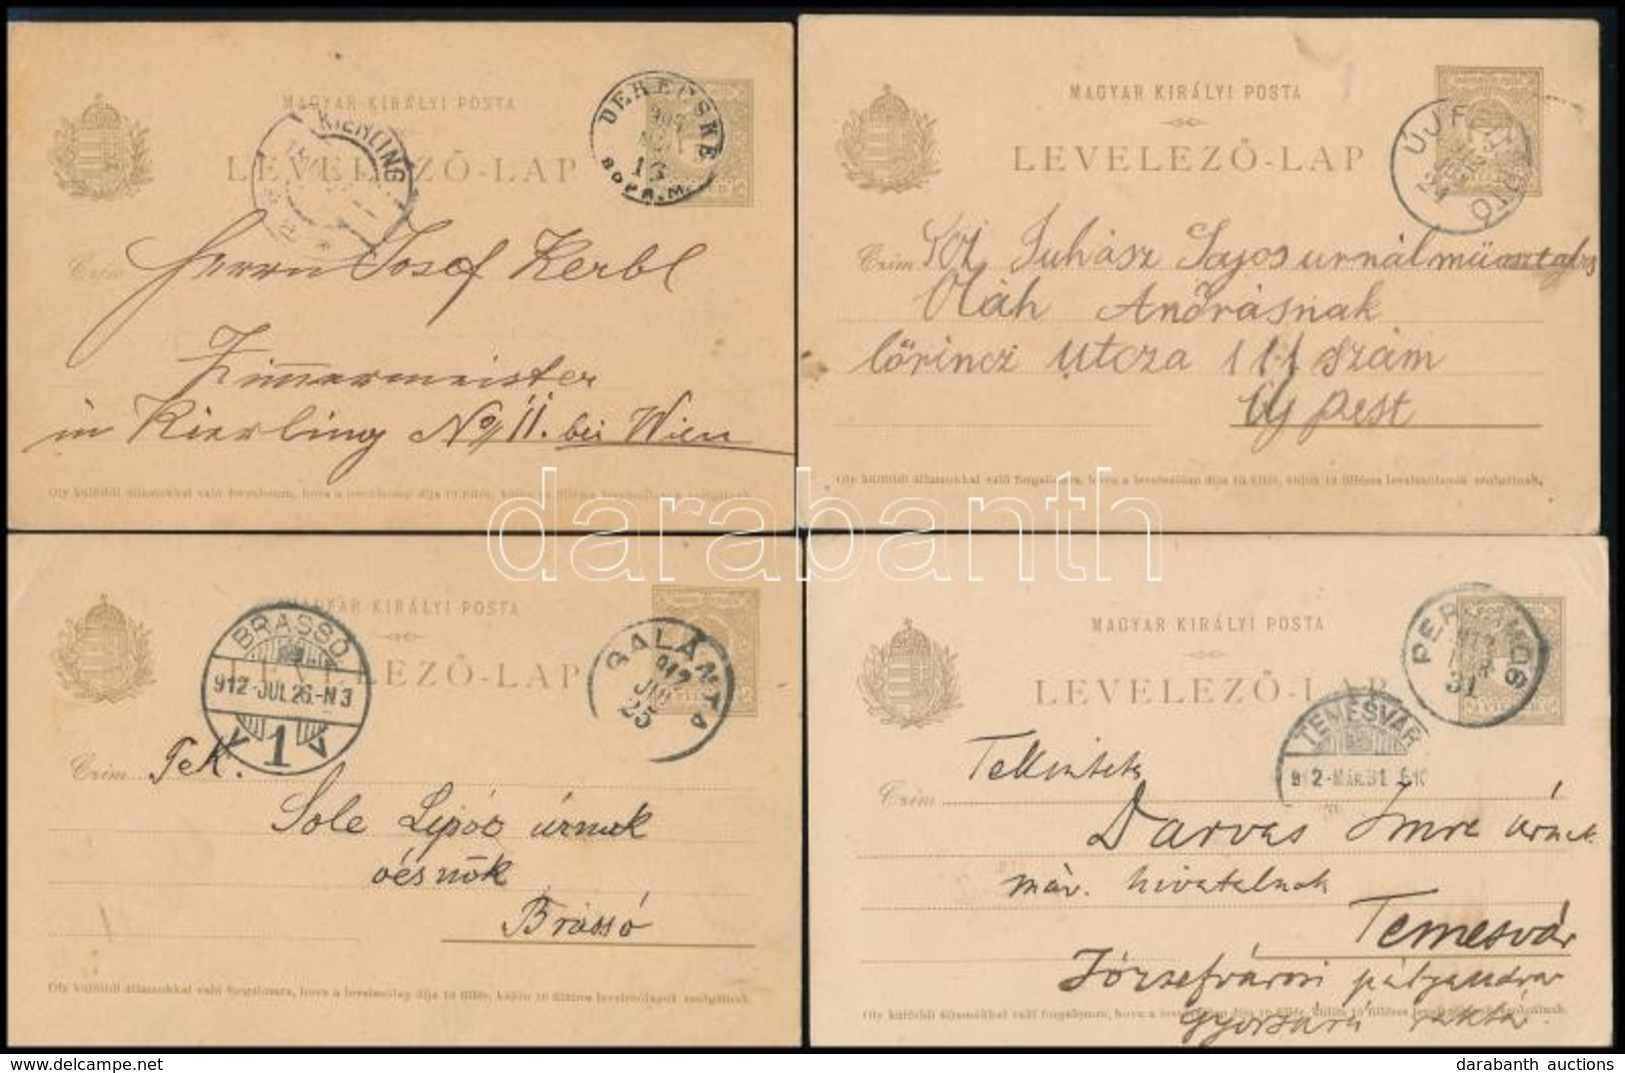 MAGYAR KIRÁLYI POSTA
LEVELEZŐ-LAP
DERECSKE
KIERLING
Czím
Herrn Josef Kerbl
Zimmermeister
in Kierling No 11. bei Wien
Oly külföldi államokkal való forgalomra, hova a levelezőlap díja 10 fillér, külön 10 filléres levelezőlapok szolgálnak.
MAGYAR KIRÁLYI POSTA
LEVELEZŐ-LAP
24
Czím
Juhász Lajos urnál
Oláh Andrásnak
lőrinczi utcza 111 szám
Ujpest
Oly külföldi államokkal való forgalomra, hova a levelezőlap díja 10 fillér, külön 10 filléres levelezőlapok szolgálnak.
MAGYAR KIRÁLYI POSTA
LEVELEZŐ-LAP
BRASSÓ
912-JUL.26.-N3
1
GALÁNTA
912
JUL
25
Czím Tek.
Sole Lipót úrnak
Brassó
Oly külföldi államokkal való forgalomra, hova a levelezőlap díja 10 fillér, külön 10 filléres levelezőlapok szolgálnak.
MAGYAR KIRÁLYI POSTA
LEVELEZŐ-LAP
PERJÁMOS
912
31
TEMESVÁR
912-MÁR.31
Czím
Darvas Imre úrnak
máv. hivatalnok
Temesvár
Józsefvárosi pályaudvar
gyorsáru raktár.
Oly külföldi államokkal való forgalomra, hova a levelezőlap díja 10 fillér, külön 10 filléres levelezőlapok szolgálnak.
darabanth
darabanth auctions